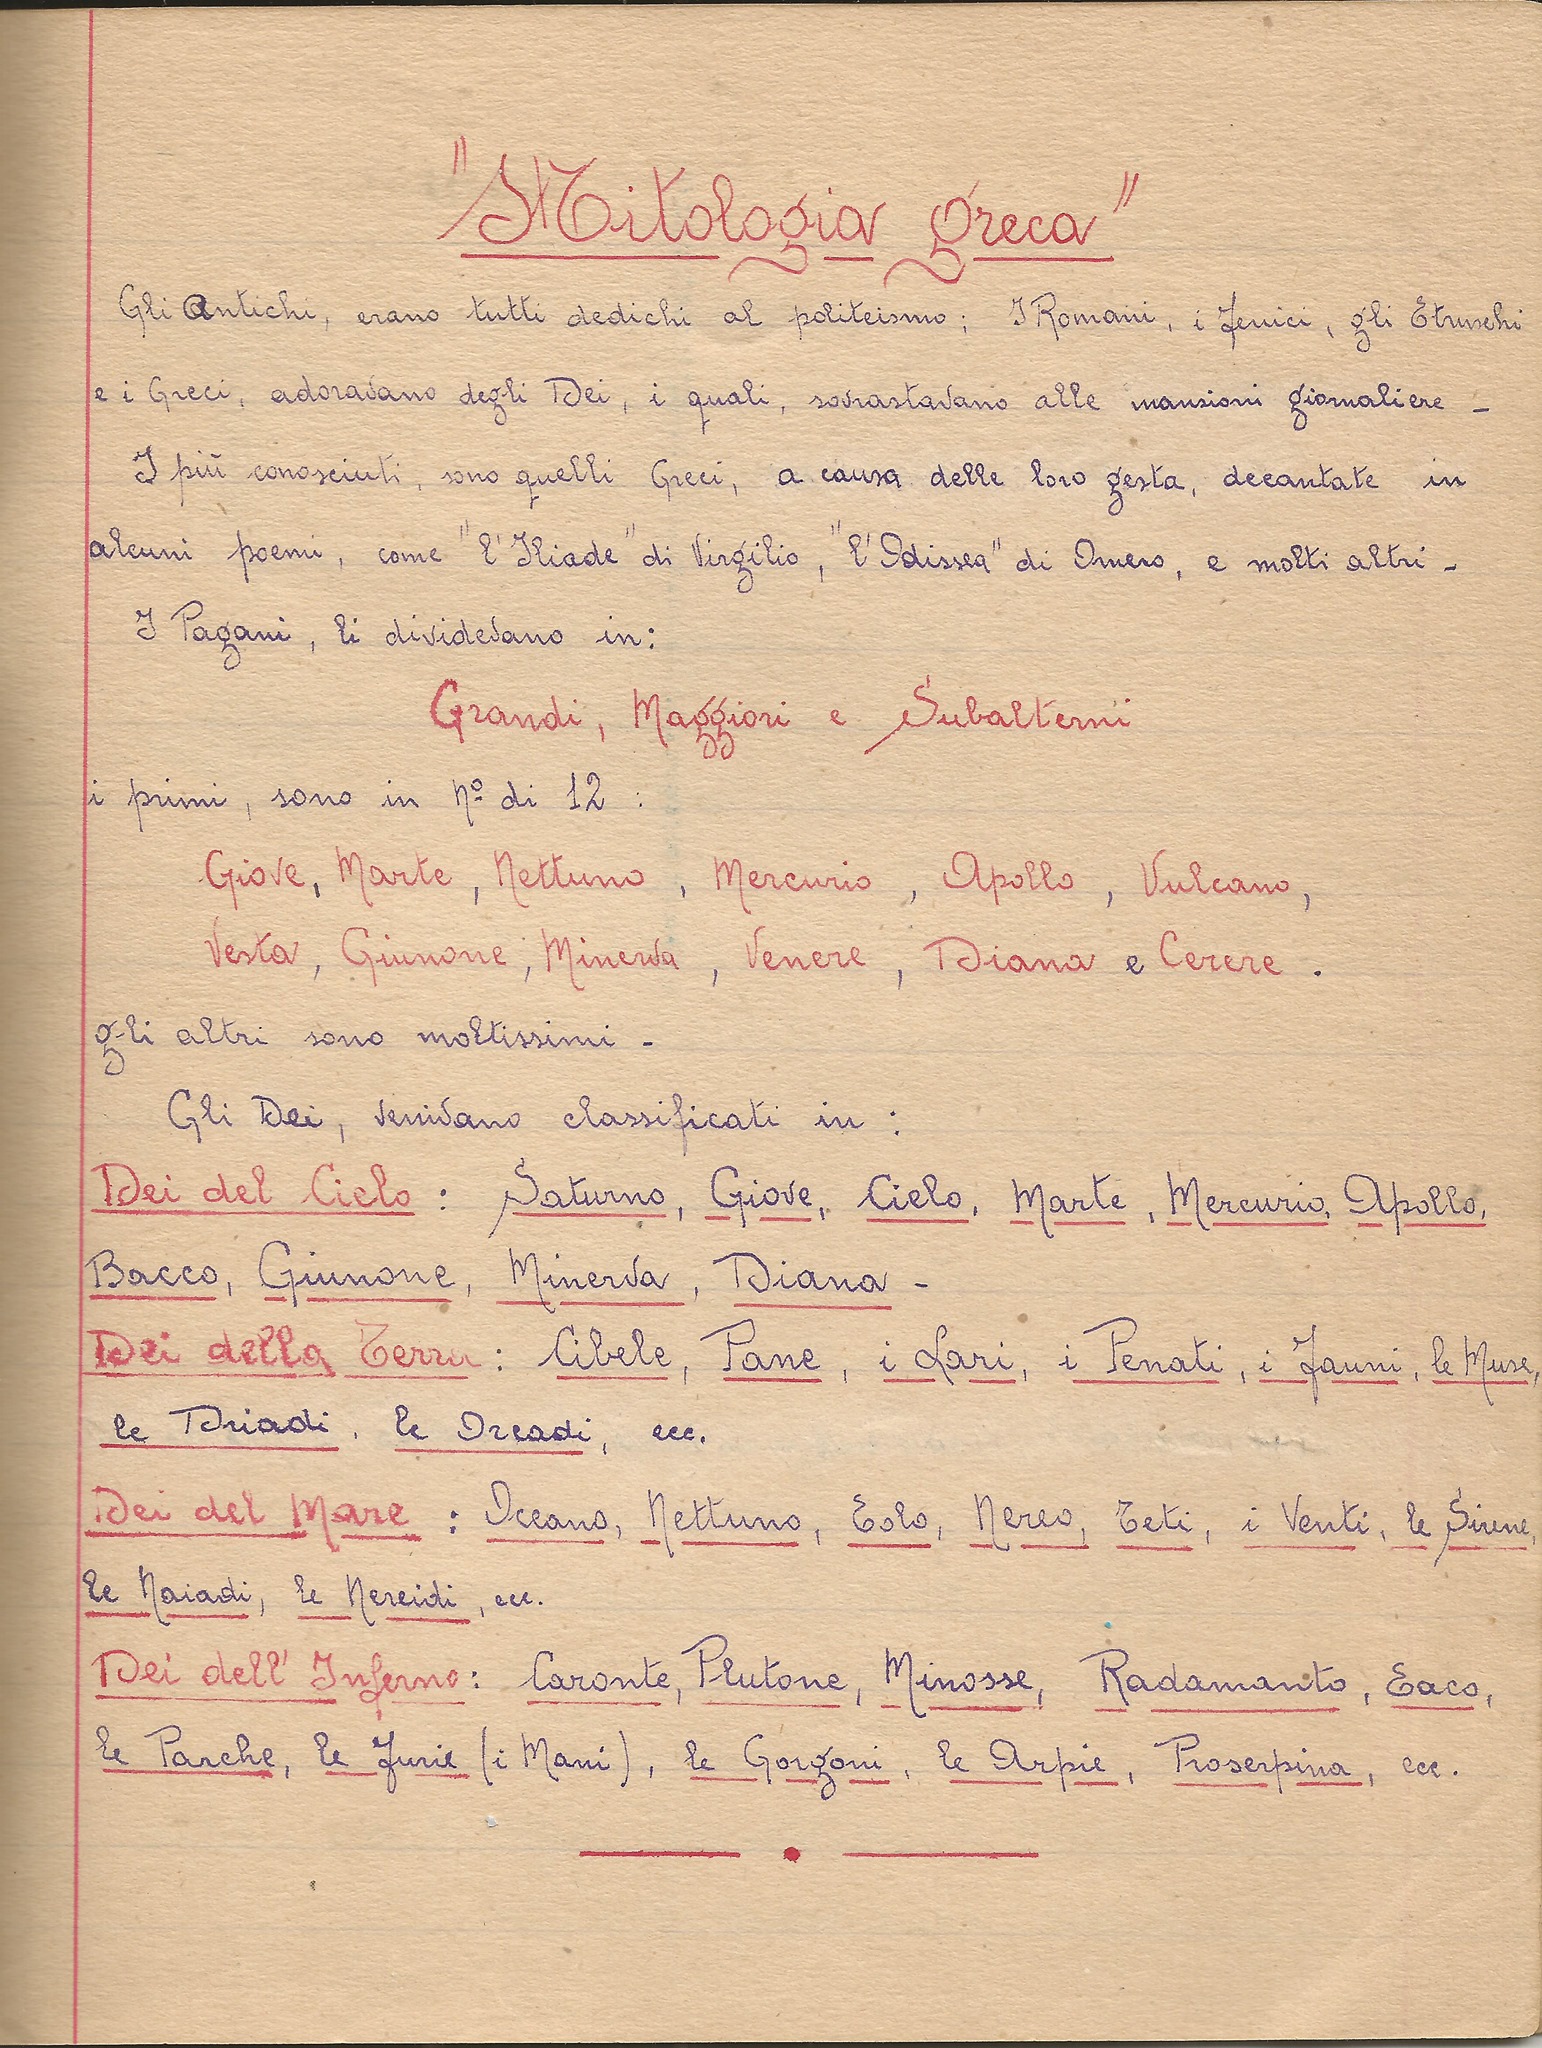 "Mitologia greca"
Gli Antichi, erano tutti dedichi al politeismo; I Romani, i Fenici, gli Etruschi
e i Greci, adoravano degli Dei, i quali, sovrastavano alle mansioni giornaliere -
I più conosciuti, sono quelli Greci, a causa delle loro gesta, decantate in
alcuni poemi, come "l'Iliade" di Virgilio, "l'Odissea" di Omero, e molti altri -
I Pagani, li dividevano in:
Grandi, Maggiori e Subalterni
i primi, sono in Nº di 12 :
Giove, Marte, Nettuno, Mercurio, Apollo, Vulcano,
Vesta, Giunone, Minerva, Venere, Diana e Cerere.
gli altri sono moltissimi -
Gli Dei, venivano classificati in :
Dei del Cielo : Saturno, Giove, Cielo, Marte, Mercurio, Apollo,
Bacco, Giunone, Minerva, Diana -
Dei della Terra : Cibele, Pane, i Lari, i Penati, i Fauni, le Muse,
le Driadi, le Oreadi, ecc.
Dei del Mare : Oceano, Nettuno, Eolo, Nereo, Teti, i Venti, le Sirene,
le Naiadi, le Nereidi, ecc.
Dei dell'Inferno : Caronte, Plutone, Minosse, Radamanto, Eaco,
le Parche, le Furie (i Mani), le Gorgoni, le Arpie, Proserpina, ecc.